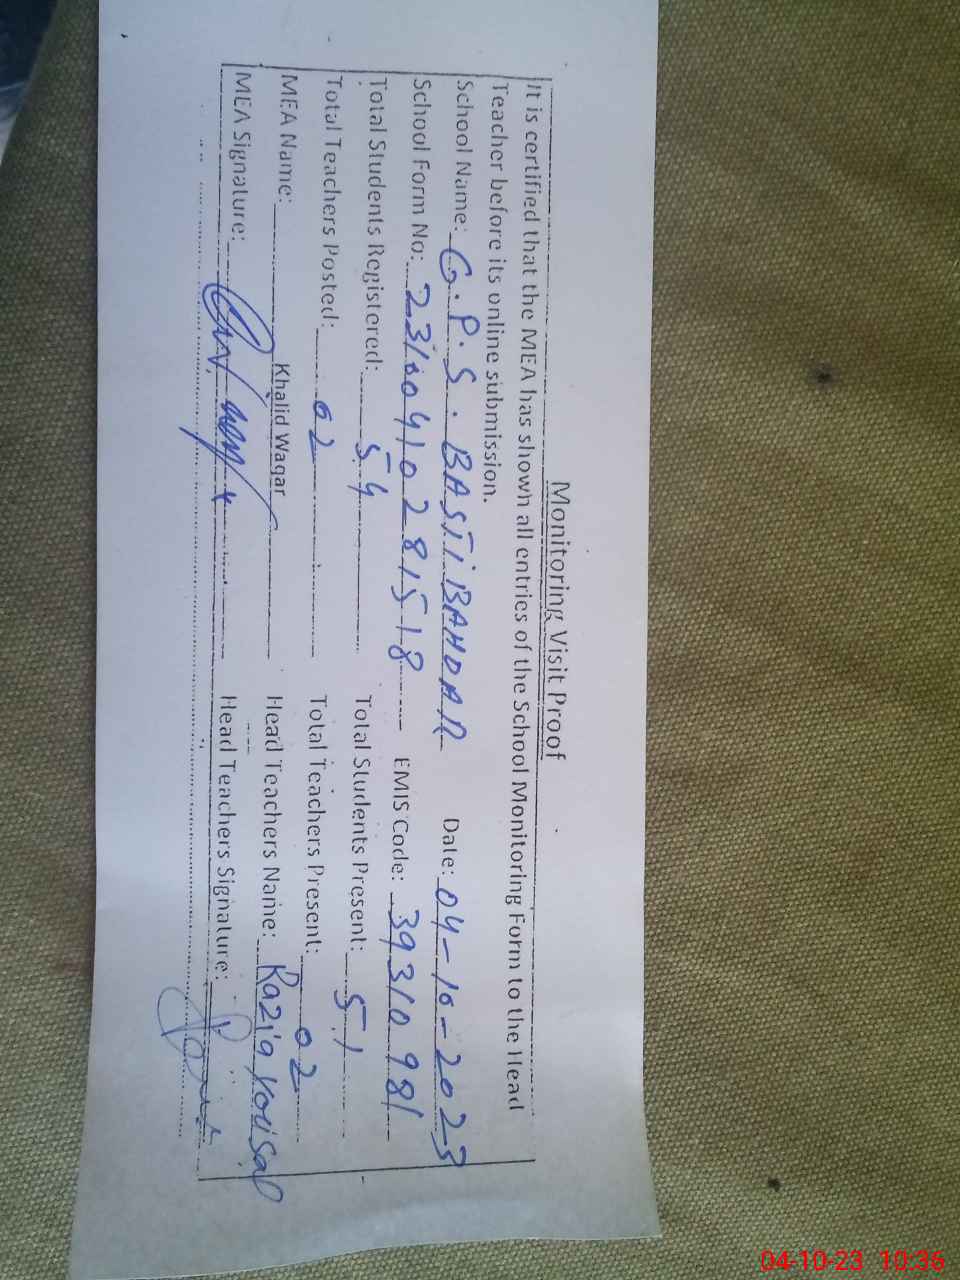 Monitoring Visit Proof
It is certified that the MEA has shown all entries of the School Monitoring Form to the Head
Teacher before its online submission.
School Name: G.P.S. BASTI BAHDAR Date: 04-10-2023
School Form No: 23100410281518 EMIS Code: 39310981
Total Students Registered: 54 Total Students Present: 51
Total Teachers Posted: 02 Total Teachers Present: 02
MEA Name: Khalid Waqar Head Teachers Name: Raziq
MEA Signature: Head Teachers Signature:
04-10-23 10:36